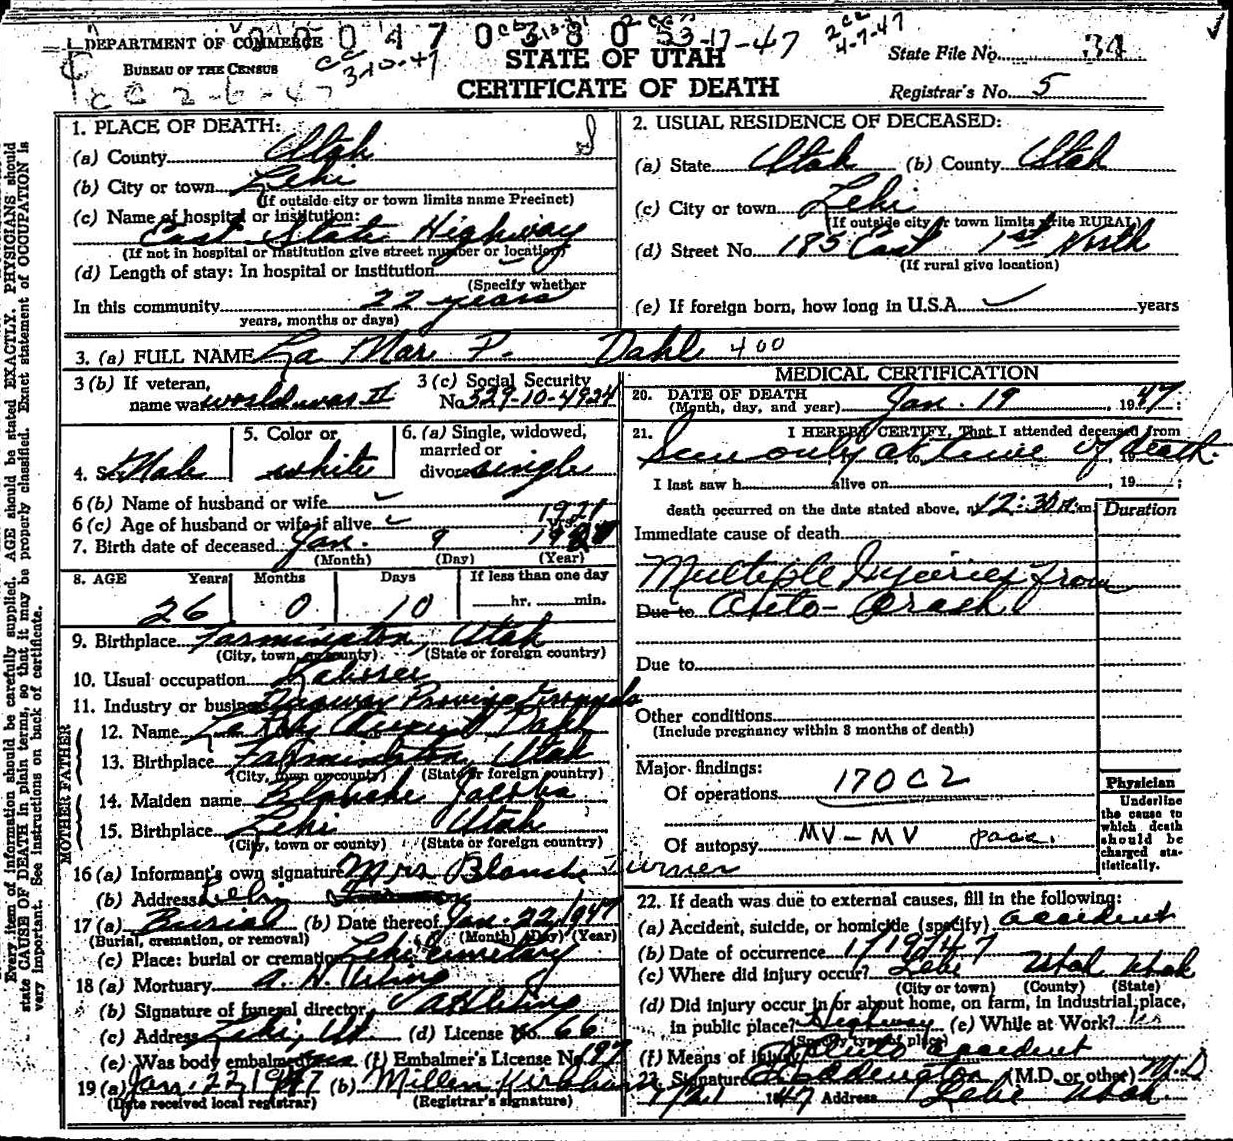 0 0 0 4 7 0 3 3 0 5
3-17-47
4-7-47
DEPARTMENT OF COMMERCE
BUREAU OF THE CENSUS
3-10-47
CC 2-6-47
STATE OF UTAH
CERTIFICATE OF DEATH
State File No. 34
Registrar's No. 5
Every item of information should be carefully supplied. AGE should be stated EXACTLY. PHYSICIANS should
state CAUSE OF DEATH in plain terms, so that it may be properly classified. Exact statement of OCCUPATION is
very important. See instructions on back of certificate.
1. PLACE OF DEATH:
(a) County Utah
(b) City or town Lehi
(If outside city or town limits name Precinct)
(c) Name of hospital or institution:
East State Highway
(If not in hospital or institution give street number or location)
(d) Length of stay: In hospital or institution
(Specify whether
In this community 22 years
years, months or days)
2. USUAL RESIDENCE OF DECEASED:
(a) State Utah (b) County Utah
(c) City or town Lehi
(If outside city or town limits write RURAL)
(d) Street No. 185 East 1st North
(If rural give location)
(e) If foreign born, how long in U.S.A. years
3. (a) FULL NAME La Mar P. Dahl 400
3 (b) If veteran, name war World War II
3 (c) Social Security No. 529-10-4924
4. Sex Male
5. Color or white
6. (a) Single, widowed, married or divorced single
6 (b) Name of husband or wife
6 (c) Age of husband or wife if alive yrs.
1921
7. Birth date of deceased Jan. 9
(Month) (Day) (Year)
8. AGE Years Months Days If less than one day
26 0 10 hr. min.
9. Birthplace Farmington, Utah
(City, town, or county) (State or foreign country)
10. Usual occupation Laborer
11. Industry or business Dugway Proving Grounds
FATHER
12. Name La Roy August Dahl
13. Birthplace Farmington, Utah
(City, town or county) (State or foreign country)
MOTHER
14. Maiden name Blanche Jacobs
15. Birthplace Lehi Utah
(City, town or county) (State or foreign country)
16 (a) Informant's own signature Mrs Blanche Turner
(b) Address Lehi
17 (a) Burial (b) Date thereof Jan. 22, 1947
(Burial, cremation, or removal) (Month) (Day) (Year)
(c) Place: burial or cremation Lehi Cemetery
18 (a) Mortuary A. H. Wing
(b) Signature of funeral director
(c) Address Lehi, Ut. (d) License No. 66
(e) Was body embalmed yes (f) Embalmer's License No. 197
19 (a) Jan. 22, 1947 (b) Millen Kirkham
(Date received local registrar) (Registrar's signature)
MEDICAL CERTIFICATION
20. DATE OF DEATH
(Month, day, and year) Jan. 19, 1947;
21. I HEREBY CERTIFY, That I attended deceased from
Seen only at time of death.
I last saw h alive on , 19 ;
death occurred on the date stated above, at 12:30 A. m.
Duration
Immediate cause of death
Multiple Injuries from
Due to Auto-Crash
Due to
Other conditions
(Include pregnancy within 3 months of death)
Major findings:
Of operations 170C2
Of autopsy MV-MV pass.
Physician
Underline the cause to which death should be charged statistically.
22. If death was due to external causes, fill in the following:
(a) Accident, suicide, or homicide (specify) accident
(b) Date of occurrence 1/19/47
(c) Where did injury occur? Lehi Utah Utah
(City or town) (County) (State)
(d) Did injury occur in or about home, on farm, in industrial place,
in public place? Highway (e) While at Work?
(Specify type of place)
(f) Means of injury Auto accident
23. Signature Eddington (M.D. or other) M.D
1/21 1947 Address Lehi Utah